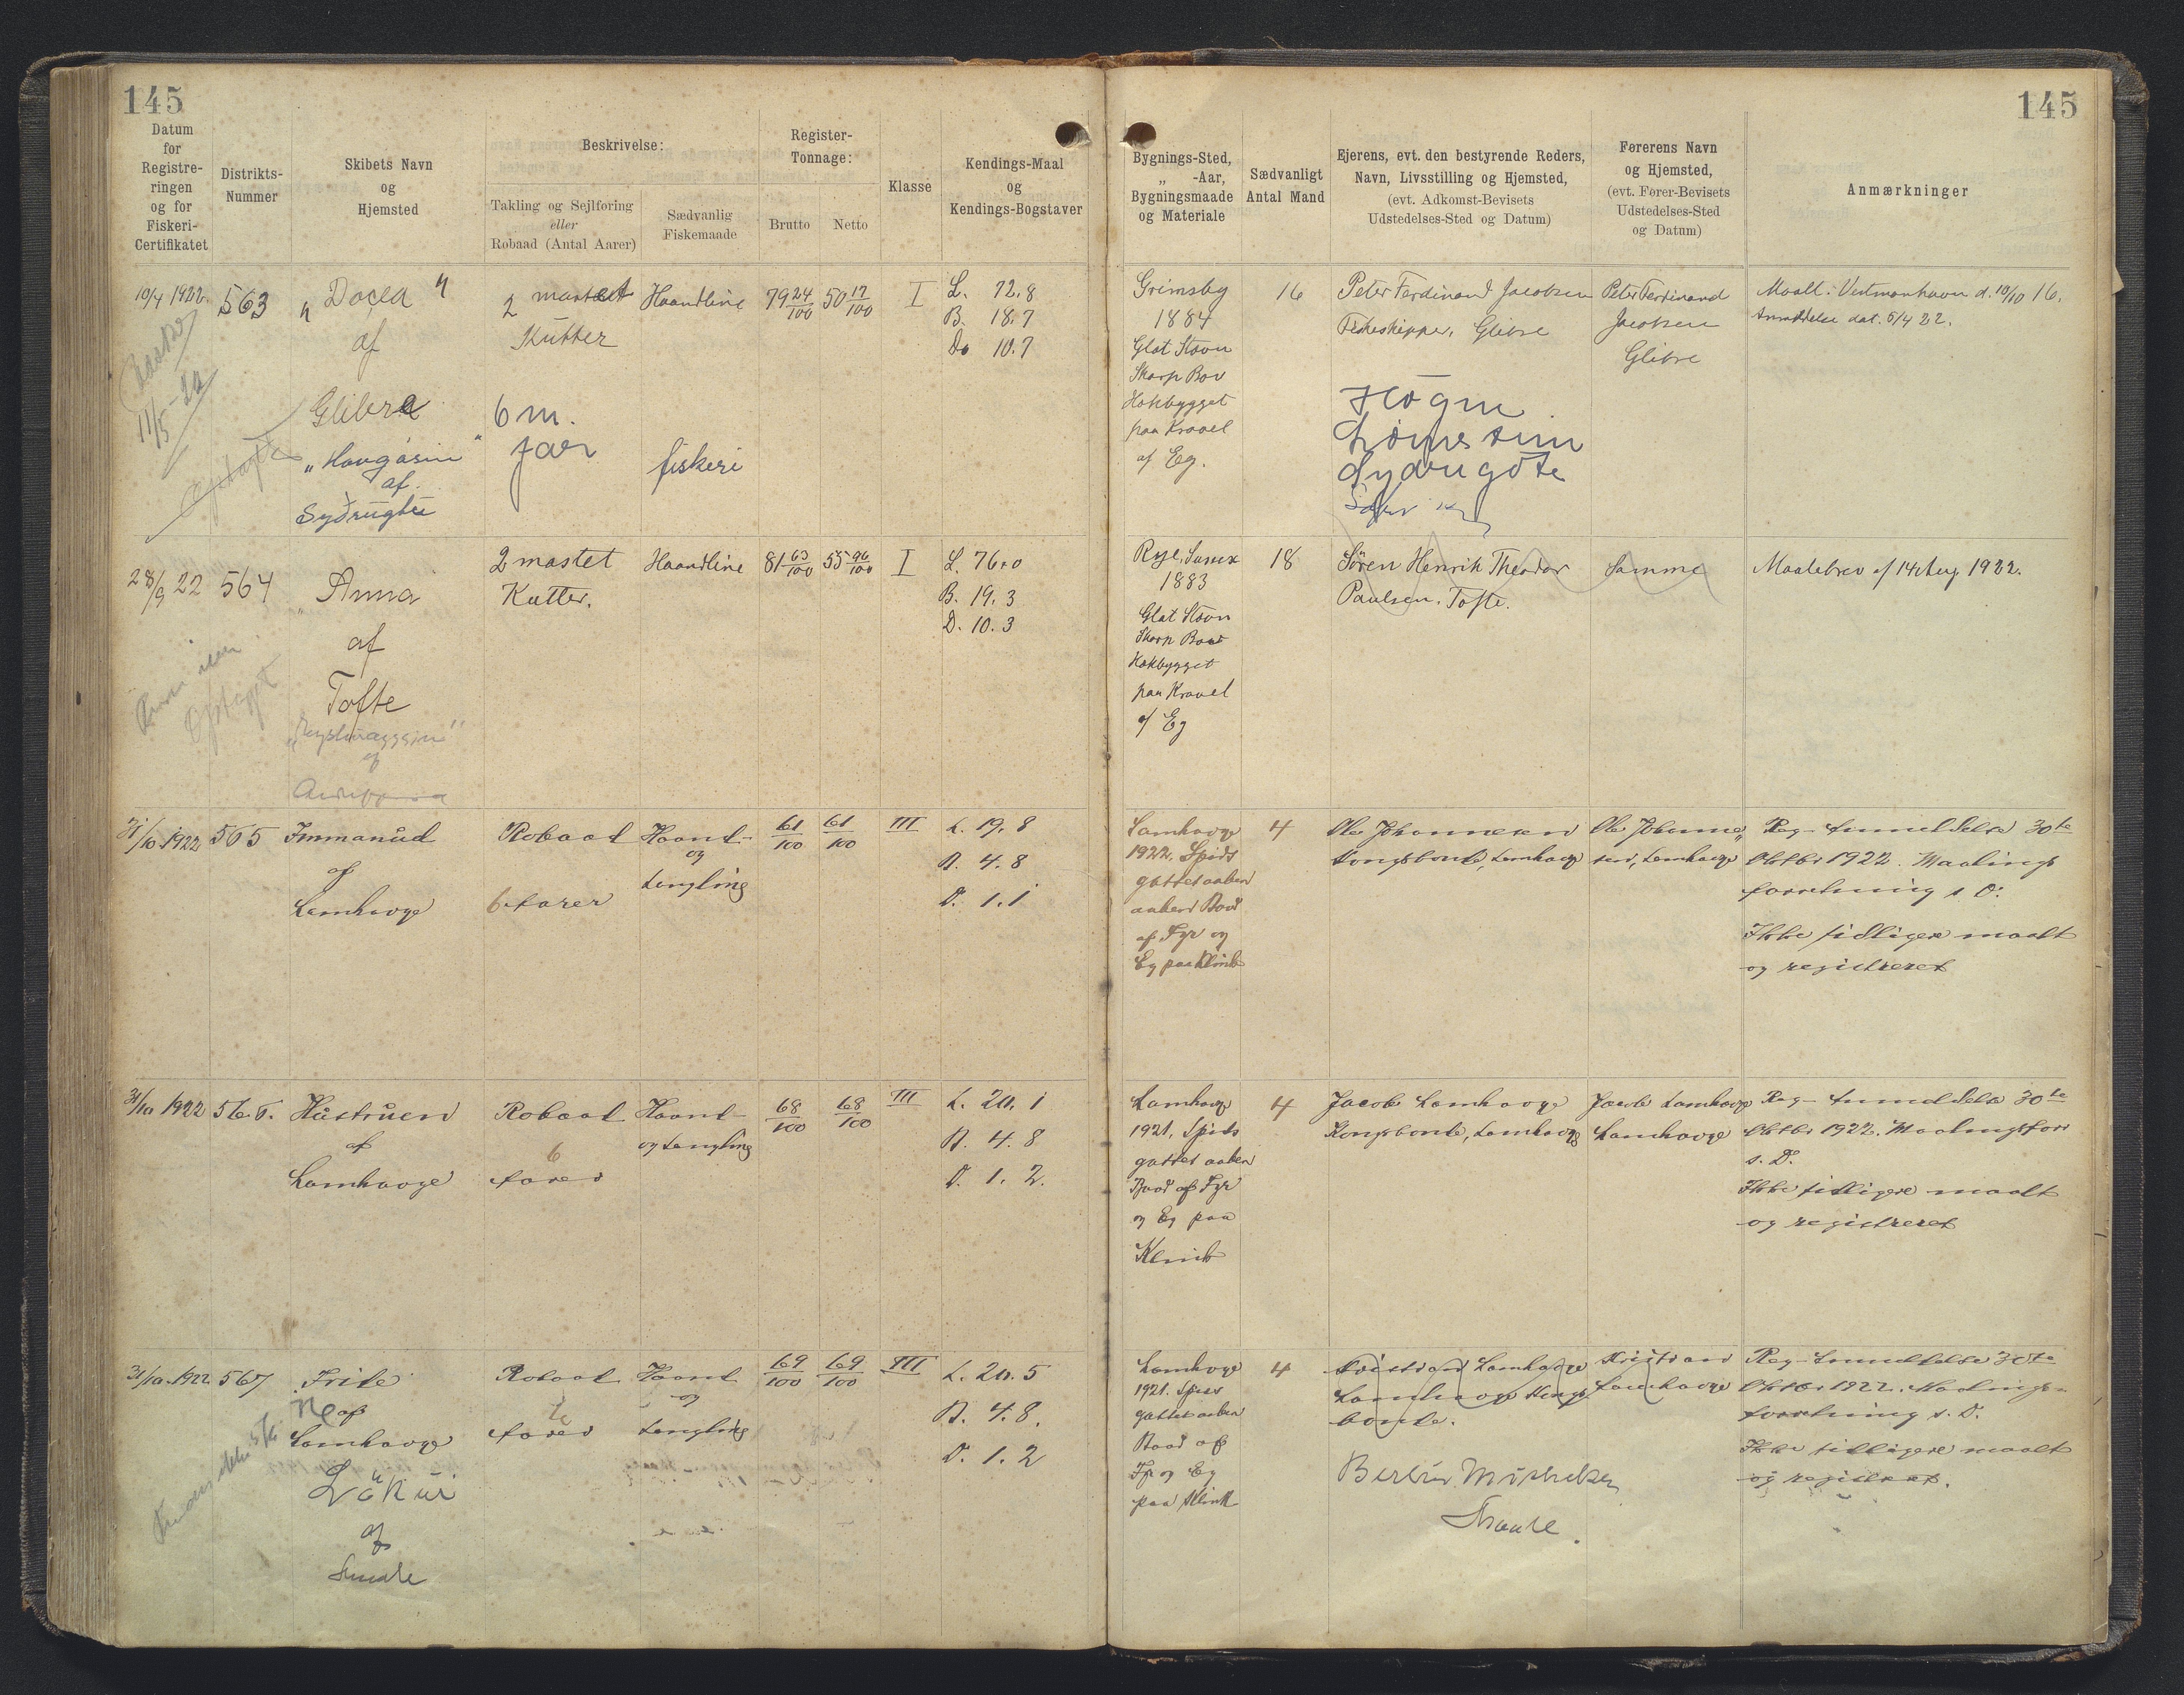 145
145
Datum
for
Registre-
ringen
og for
Fiskeri-
Certifikatet
Distrikts-
Nummer
Skibets Navn
og
Hjemsted
Beskrivelse:
Takling og Sejlføring
eller
Robaad (Antal Aarer)
Sædvanlig
Fiskemaade
Register-
Tonnage:
Brutto
Netto
Klasse
Kendings-Maal
og
Kendings-Bogstaver
Bygnings-Sted,
„ -Aar,
Bygningsmaade
og Materiale
Sædvanligt
Antal Mand
Ejerens, evt. den bestyrende Reders,
Navn, Livsstilling og Hjemsted,
(evt. Adkomst-Bevisets
Udstedelses-Sted og Datum)
Førerens Navn
og Hjemsted,
(evt. Fører-Bevisets
Udstedelses-Sted
og Datum)
Anmærkninger
10/4 1922.
11/5
563
af
Glibre
af
2 mastet
Kutter
6 m.
Haandline
fiskeri
79 24/100
50 17/100
I
L. 72.8
B. 18.7
D. 10.7
Grimsby
1884
Glat Stævn
Skarp Bov
Hækbygget
paa Kravel
af Eg.
16
Peter Ferdinand Jacobsen
Fiskeskipper, Glibre
Høgni
Sydrugøte
Peter Ferdinand
Jacobsen
Glibre
Maalt i Vestmanhavn d. 10/10 16.
Anmeldelse dat. 5/4 22.
28/9 22
564
Anna
af
Tofte
af
2 mastet
Kutter.
Haandline
81 63/100
55 96/100
I
L. 76.0
B. 19.3
D. 10.3
Rye, Sussex
1883
Glat Stævn
Skarp Bov
Hækbygget
paa Kravel
af Eg
18
Sören Henrik Theodor
Paulsen, Tofte.
Samme
Maalebrev af 14 Aug 1922.
31/10 1922
565
Immanuel
af
Lamhavge
Robaad
6 Aarer
Haand-
og
Langline
61/100
61/100
III
L. 19.8
B. 4.8
D. 1.1
Lamhavge
1922. Spids
gattet aaben
aaben Baad
af Fyr og
Eg paa Klink
4
Ole Johannesen
Kongsbonde, Lamhavge
Ole Johanne„
sen, Lamhavge
Reg- Anmeldelse 30te
Oktbr 1922. Maalings
forretning s. D.
Ikke tidligere maalt
og registreret
31/10 1922
566.
Hüstruen
af
Lamhavge
Robaad
6
Aarer
Haand-
og Langline
68/100
68/100
III
L. 20.1
B. 4.8
D. 1.2.
Lamhavge
1921. Spids
gattet aaben
Baad af Fyr
og Eg paa
Klink
4
Jacob Lamhavge
Kongsbonde, Lamhavge
Jacob Lamhavge
Lamhavge
Reg- Anmeldelse 30te
Oktbr 1922. Maalingsforr
s. D.
Ikke tidligere maalt
og registreret
31/10 1922
567
Fride
af
Lamhavge
af
Robaad
6
Aarer
Haand
og
Langline
69/100
69/100
III
L. 20.5
B. 4.8.
D. 1.2
Lamhavge
1921. Spids
gattet aaben
Baad af
Fyr og Eg
paa Klink
4
Kristian Lamhavge
Lamhavge Kongs
bonde.
Kristian
Lamhavge
Reg- Anmeldelse 30te
Oktbr 1922. Maalings-
forretning s. D.
Ikke tidligere maalt
og registreret.